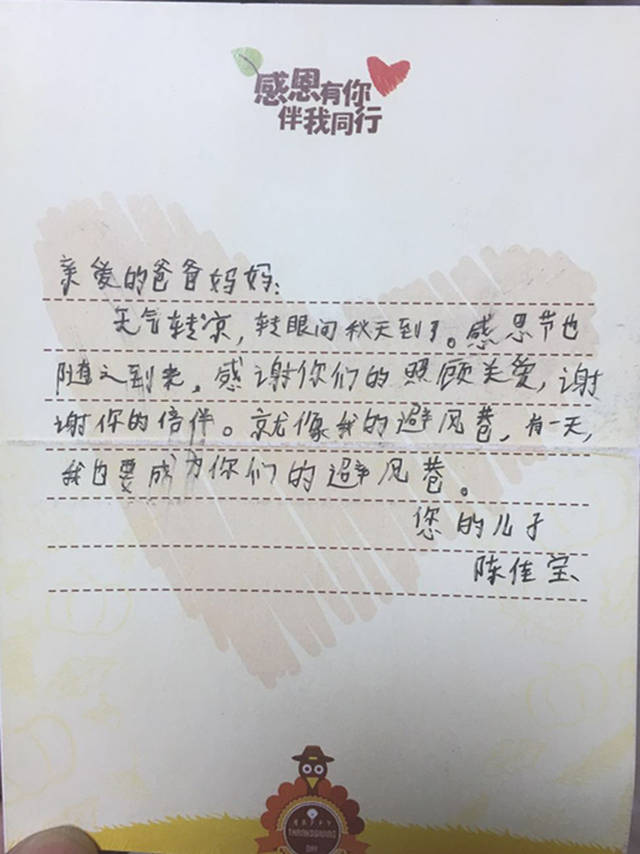 感恩有你
伴我同行
亲爱的爸爸妈妈:
天气转凉,转眼间秋天到了。感恩节也
随之到来,感谢你们的照顾关爱,谢
谢你的倍伴。就像我的避风巷,有一天,
我也要成为你们的避风巷。
您的儿子
陈佳宝
THANKSGIVING
DAY